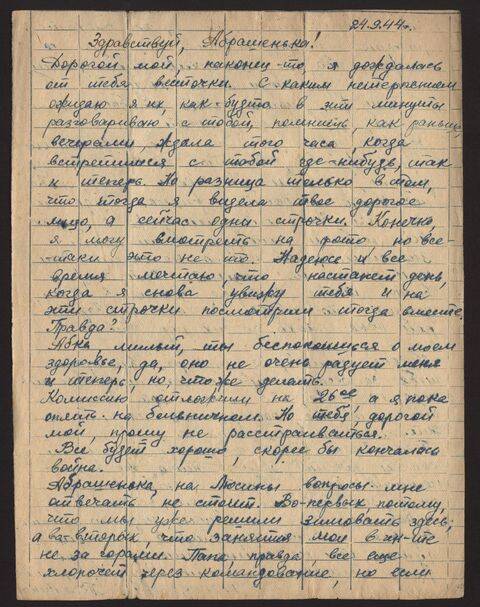 24.9.44г.
Здравствуй, Абрашенька!
Дорогой мой, наконец-то, я дождалась
от тебя весточки. С каким нетерпением
ожидаю я их, как будто в эти минуты
разговариваю с тобой, помнишь, как раньше,
вечерами, ждала того часа, когда
встретимся с тобой где-нибудь, так
и теперь. Но разница только в том,
что тогда я видела твое дорогое
лицо, а сейчас одни строчки. Конечно,
я могу смотреть на фото но все-
-таки это не то. Надеюсь и все
время мечтаю, что настанет день,
когда я снова увижу тебя и на
эти строчки посмотрим тогда вместе.
Правда?
Абка, милый, ты беспокоишься о моем
здоровье, да, оно не очень радует меня
и теперь, но, что же делать.
Комиссию отложили на 26ое, а я пока
опять на больничном. Но тебя, дорогой
мой, прошу не расстраиваться.
Все будет хорошо, скорее бы кончалась
война.
Абрашенька, на Люсины вопросы мне
отвечать не стоит. Во-первых, потому,
что мы уже решили зимовать здесь,
а во-вторых, что занятия мои в ин-те
не за горами. Папа, правда, все еще
хлопочет через командование, но если